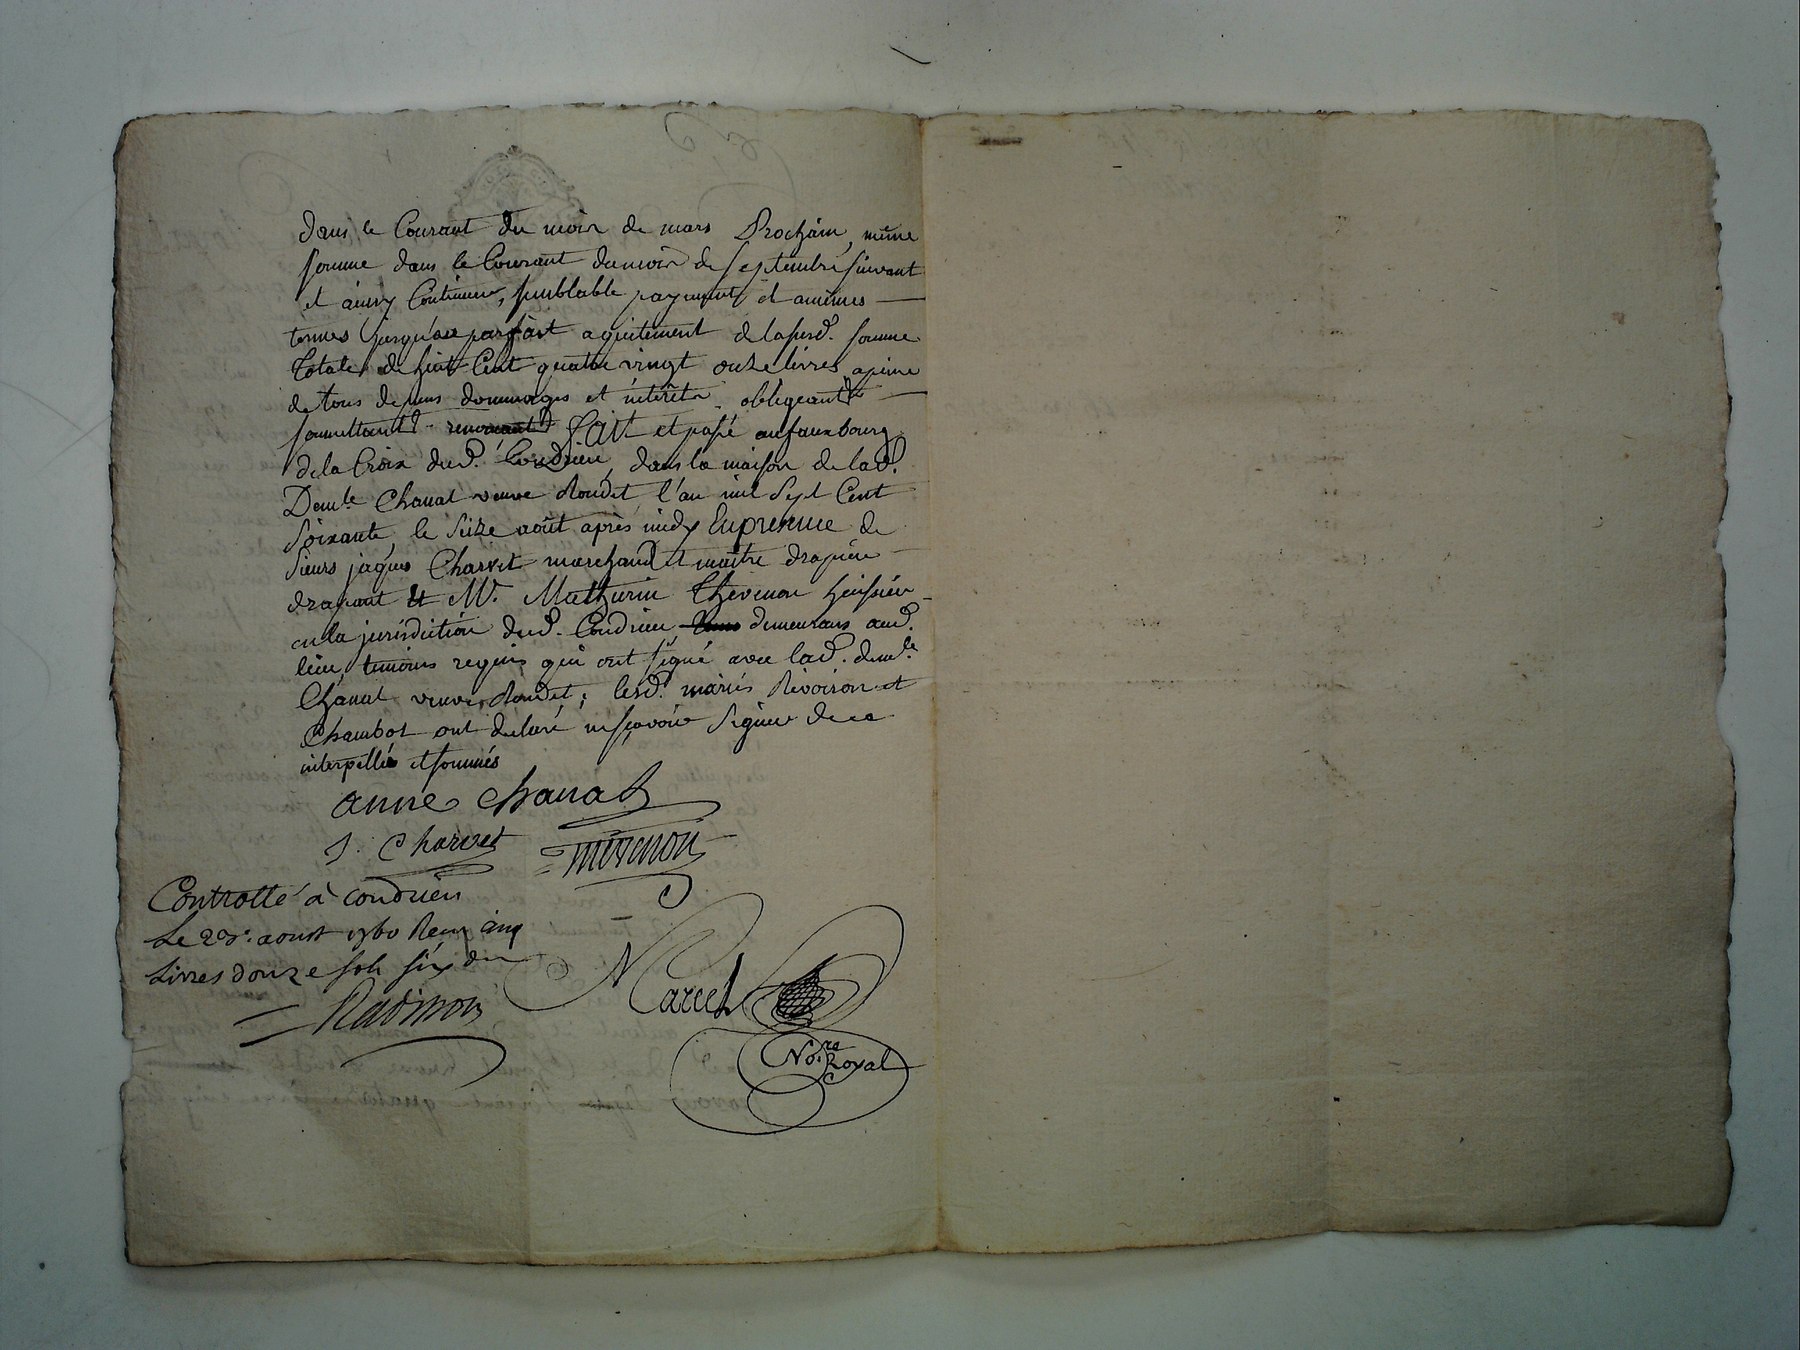 dans le Courant du mois de mars Prochain, même
somme dans le Courant du mois de septembre suivant
et ainsy Continuer, semblable payement et a mêmes
termes jusqu'au parfait aquitement de la susd. somme
totale de huit Cent quatre vingt onze livres a peine
de tous depens dommages et intérêts obligeant
soumettant Fait et passé au fauxbourg
de la Croix dud. Condrieu, dans la maison de lad.
Demle Chanal veuve Roudet l'an mil sept Cent
soixante, le seize août après midy En presence de
sieurs jaques Charvet marchand et maître drapier
drapant et Mr. Mathurin Thevenon huissier
en la jurisdiction dud. Condrieu, demeurans aud.
lieu, temoins requis qui ont signé avec lad. demle
Chanal veuve Roudet; lesd. mariés Rivoiron et
Chambot ont declaré ne sçavoir signer de ce
interpellés et sommés
anne chanal
J. Charvet thevenon
Controllé à condrieu
Le aoust 1760 Reçu cinq
Livres douze sols six den
Marcel
Nore Royal